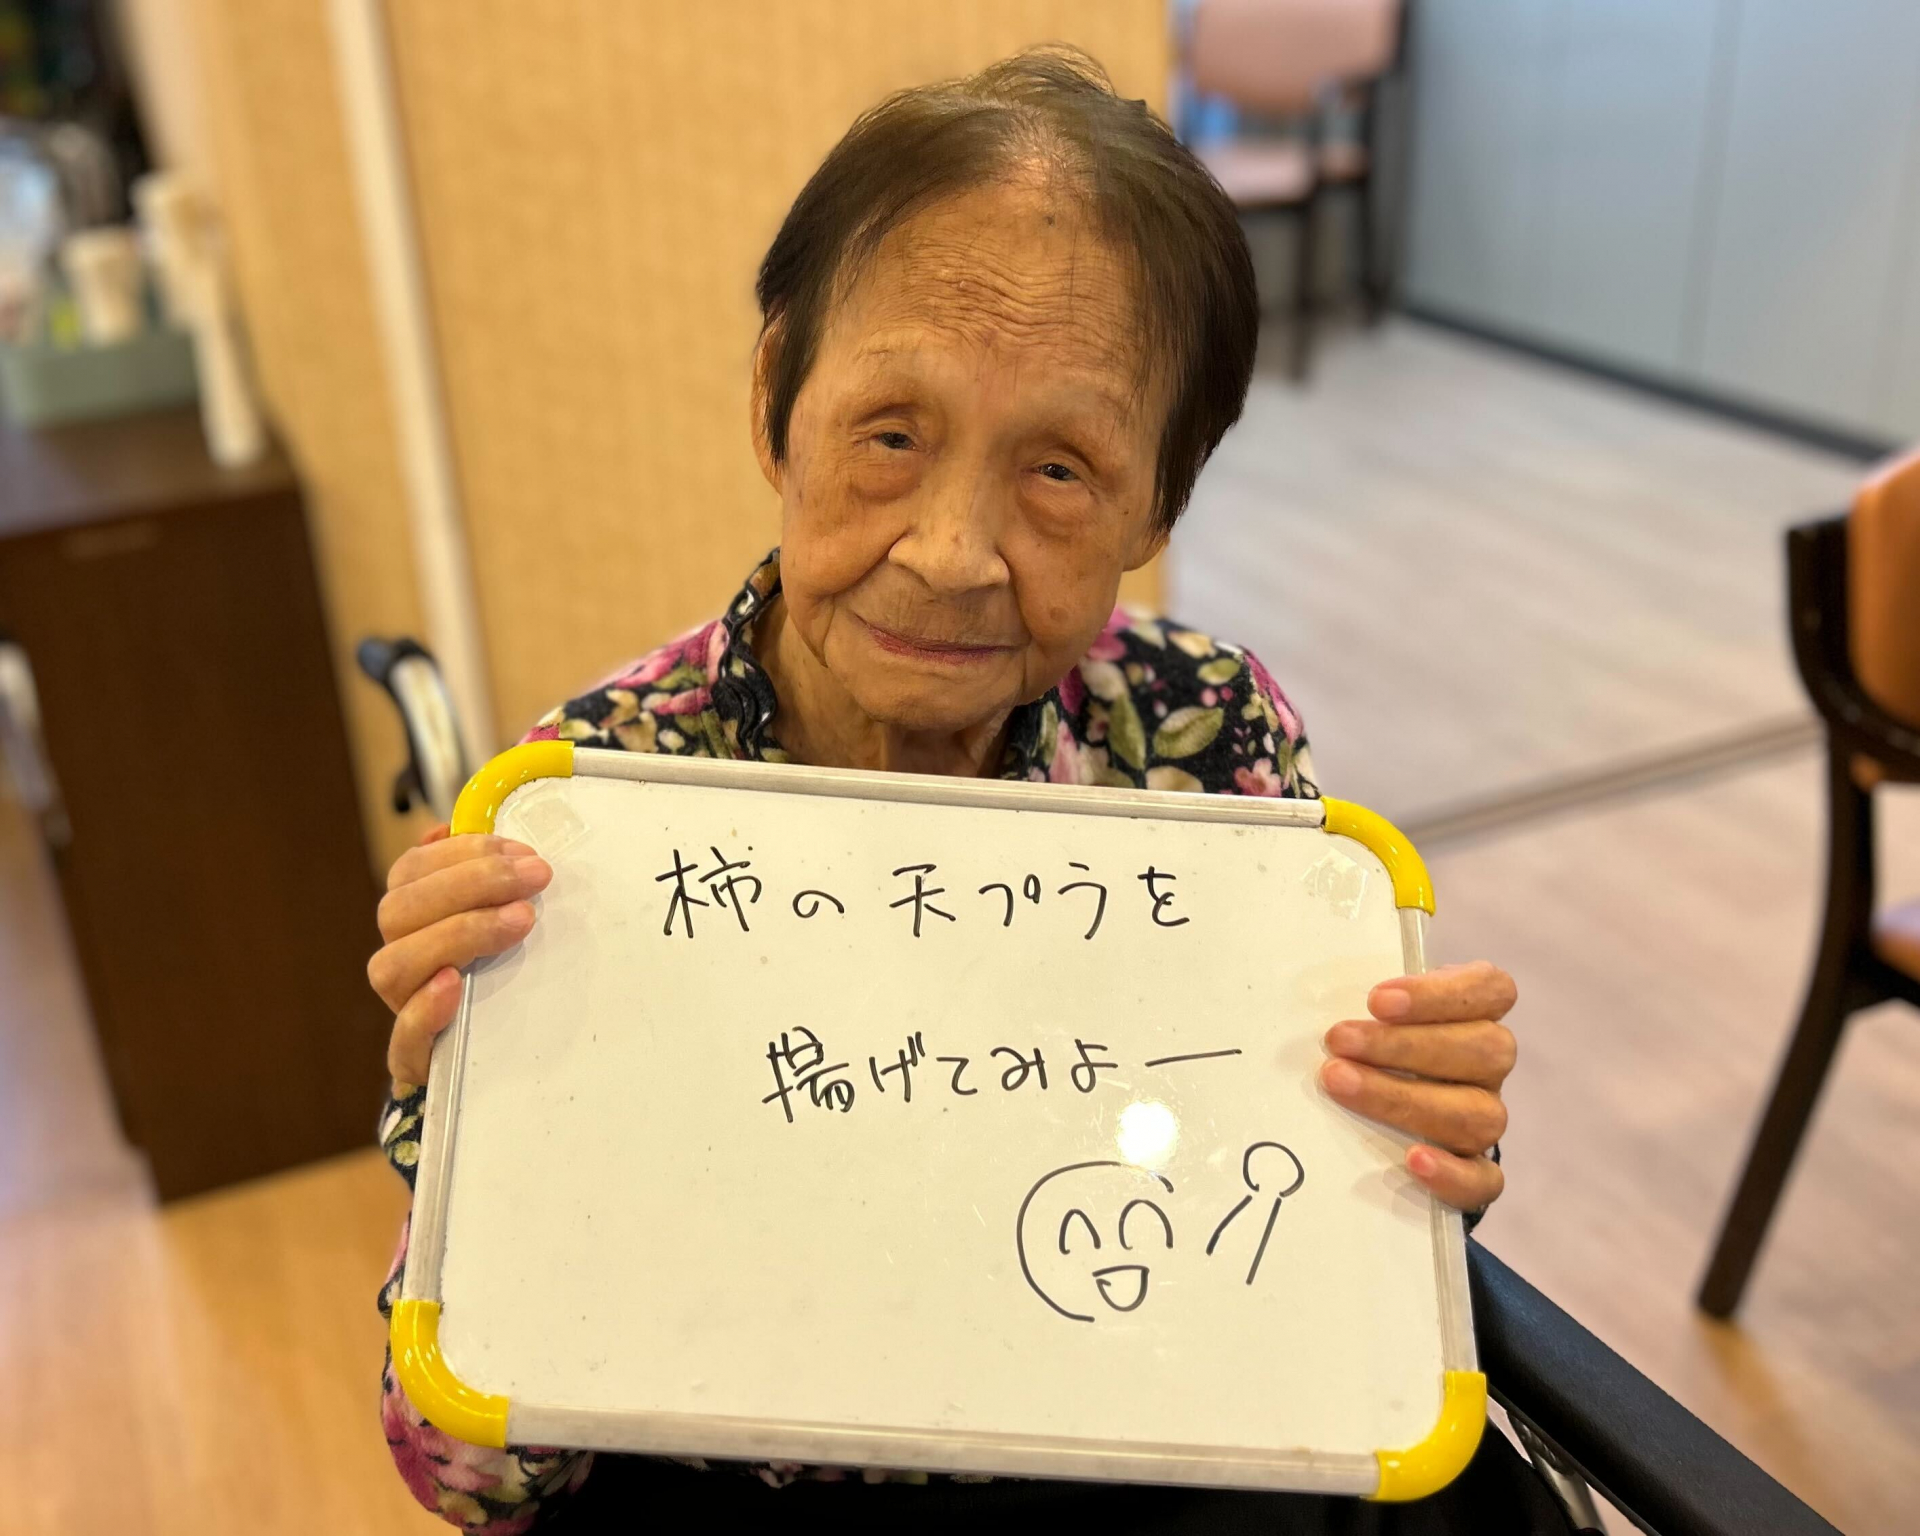 柿の天プラを
揚げてみよー